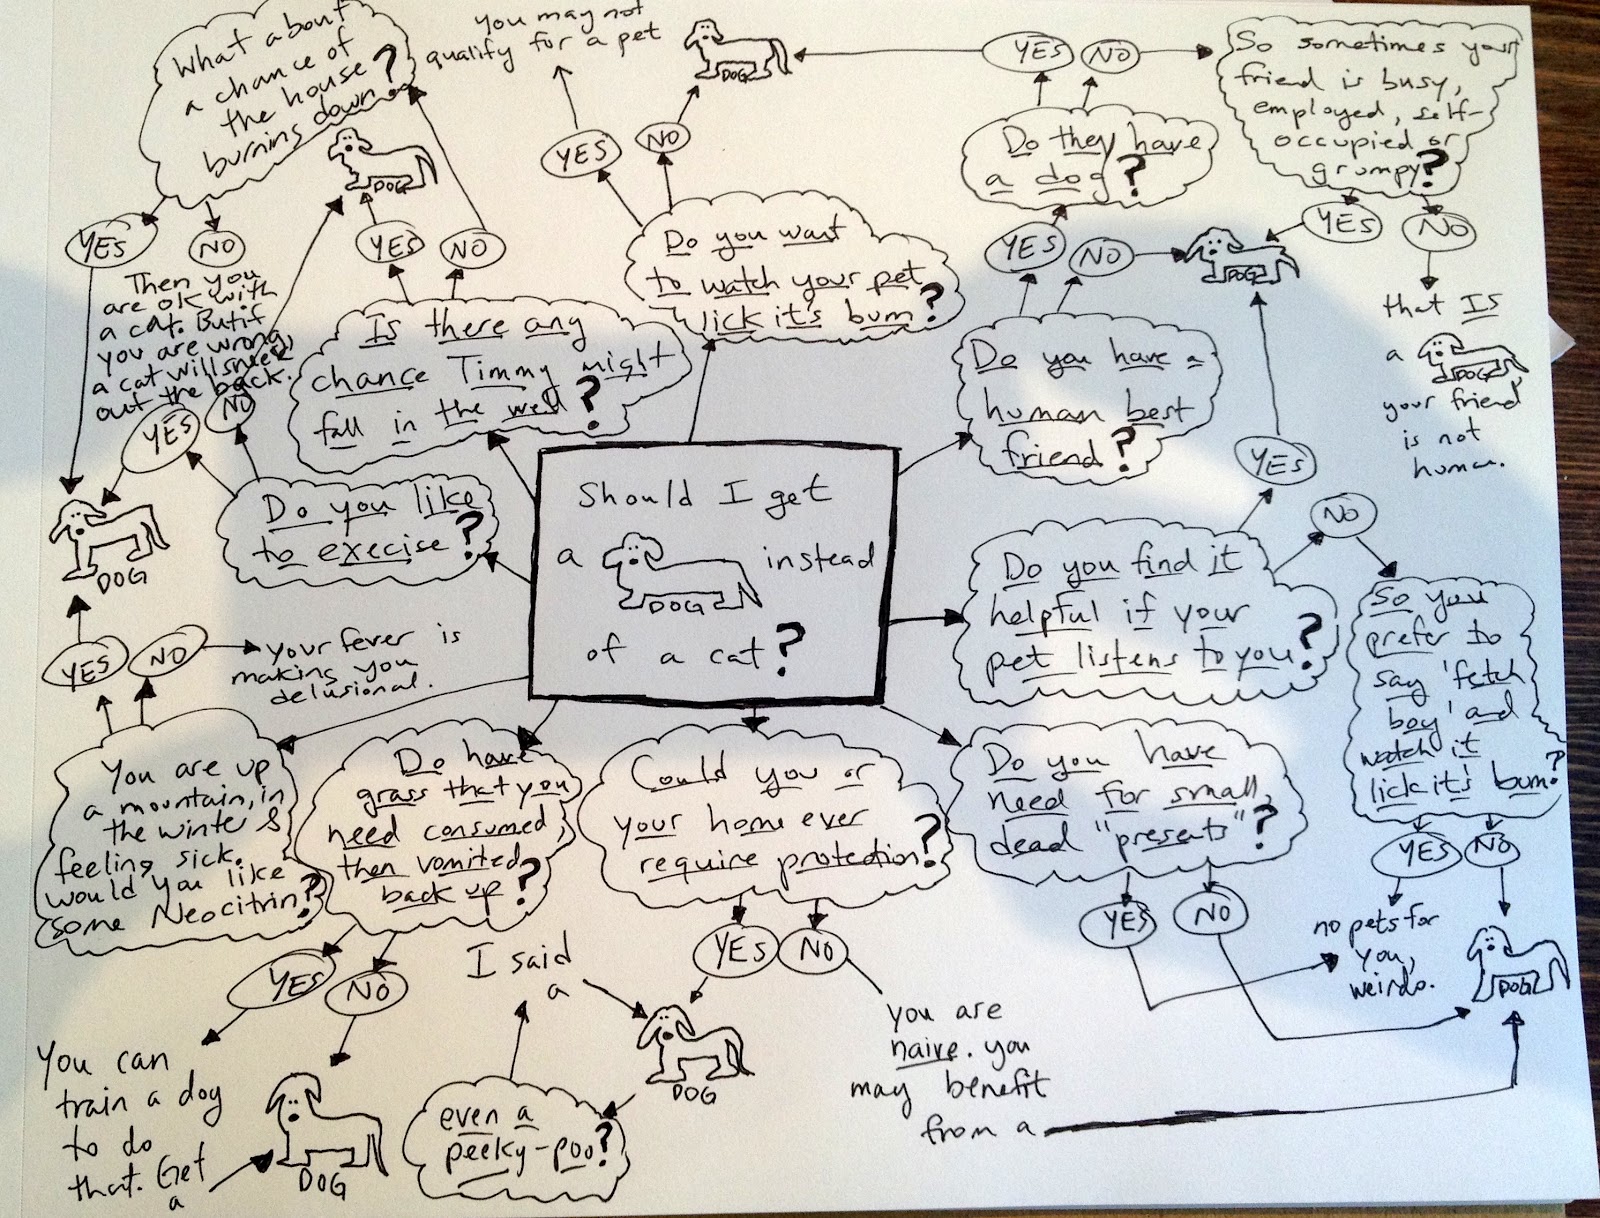 What about
a chance of
the house
burning down?
YES
NO
Then you
are ok with
a cat. But if
you are wrong,
a cat will sneak
out the back.
DOG
YES
NO
Is there any
chance Timmy might
fall in the well?
you may not
qualify for a pet
DOG
YES
NO
Do you want
to watch your pet
lick it's bum?
YES
NO
Do they have
a dog?
YES
NO
Do you have a
human best
friend?
So sometimes your
friend is busy,
employed, self-
occupied or
grumpy?
YES
NO
DOG
that IS
a DOG,
your friend
is not
human.
YES
NO
Do you like
to execise?
DOG
Should I get
a DOG instead
of a cat?
YES
NO
Do you find it
helpful if your
pet listens to you?
So you
prefer to
say 'fetch
boy' and
watch it
lick it's bum?
YES
NO
no pets for
you,
weirdo.
DOG
YES
NO
your fever is
making you
delusional.
You are up
a mountain, in
the winter &
feeling sick.
would you like
some Neocitrin?
Do have
grass that you
need consumed,
then vomited
back up?
YES
NO
You can
train a dog
to do
that. Get
a
DOG
Could you or
your home ever
require protection?
YES
NO
I said
a
DOG
even a
peeky-poo?
you are
naive. you
may benefit
from a
Do you have
need for small,
dead "presents"?
YES
NO